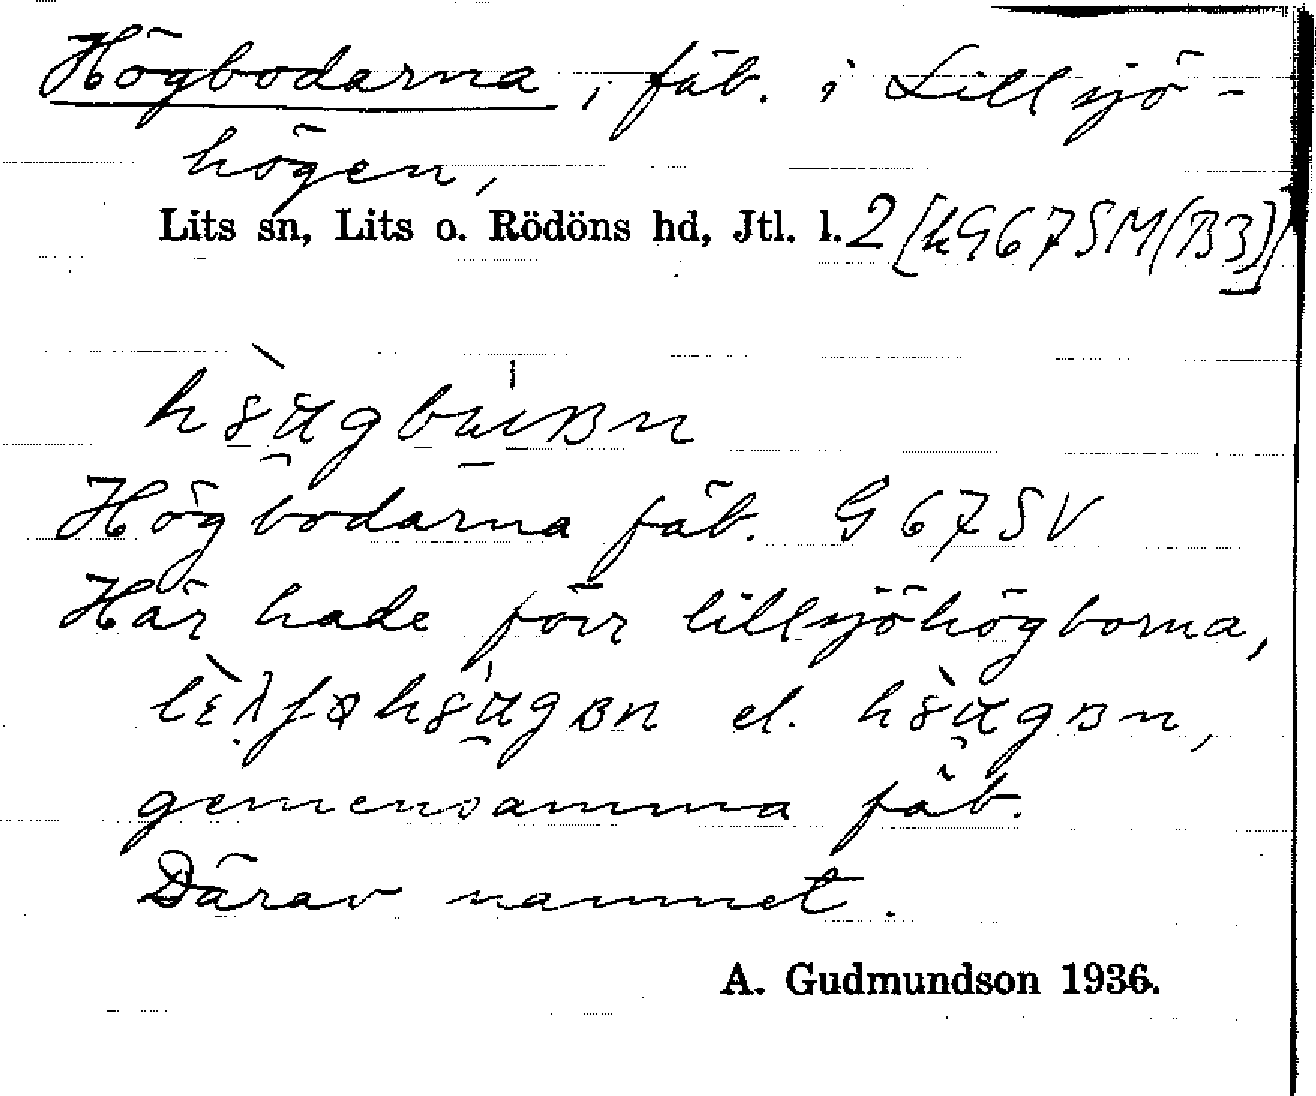 Högbodarna, fäb. i Lillsjö-
högen,
Lits sn, Lits o. Rödöns hd, Jtl. l. 2 [kG67SM(B3)]
Högbodarna fäb. G67SV
Här hade förr lillsjöhögborna,
el.
gemensamma fäb.
Därav namnet.
A. Gudmundson 1936.